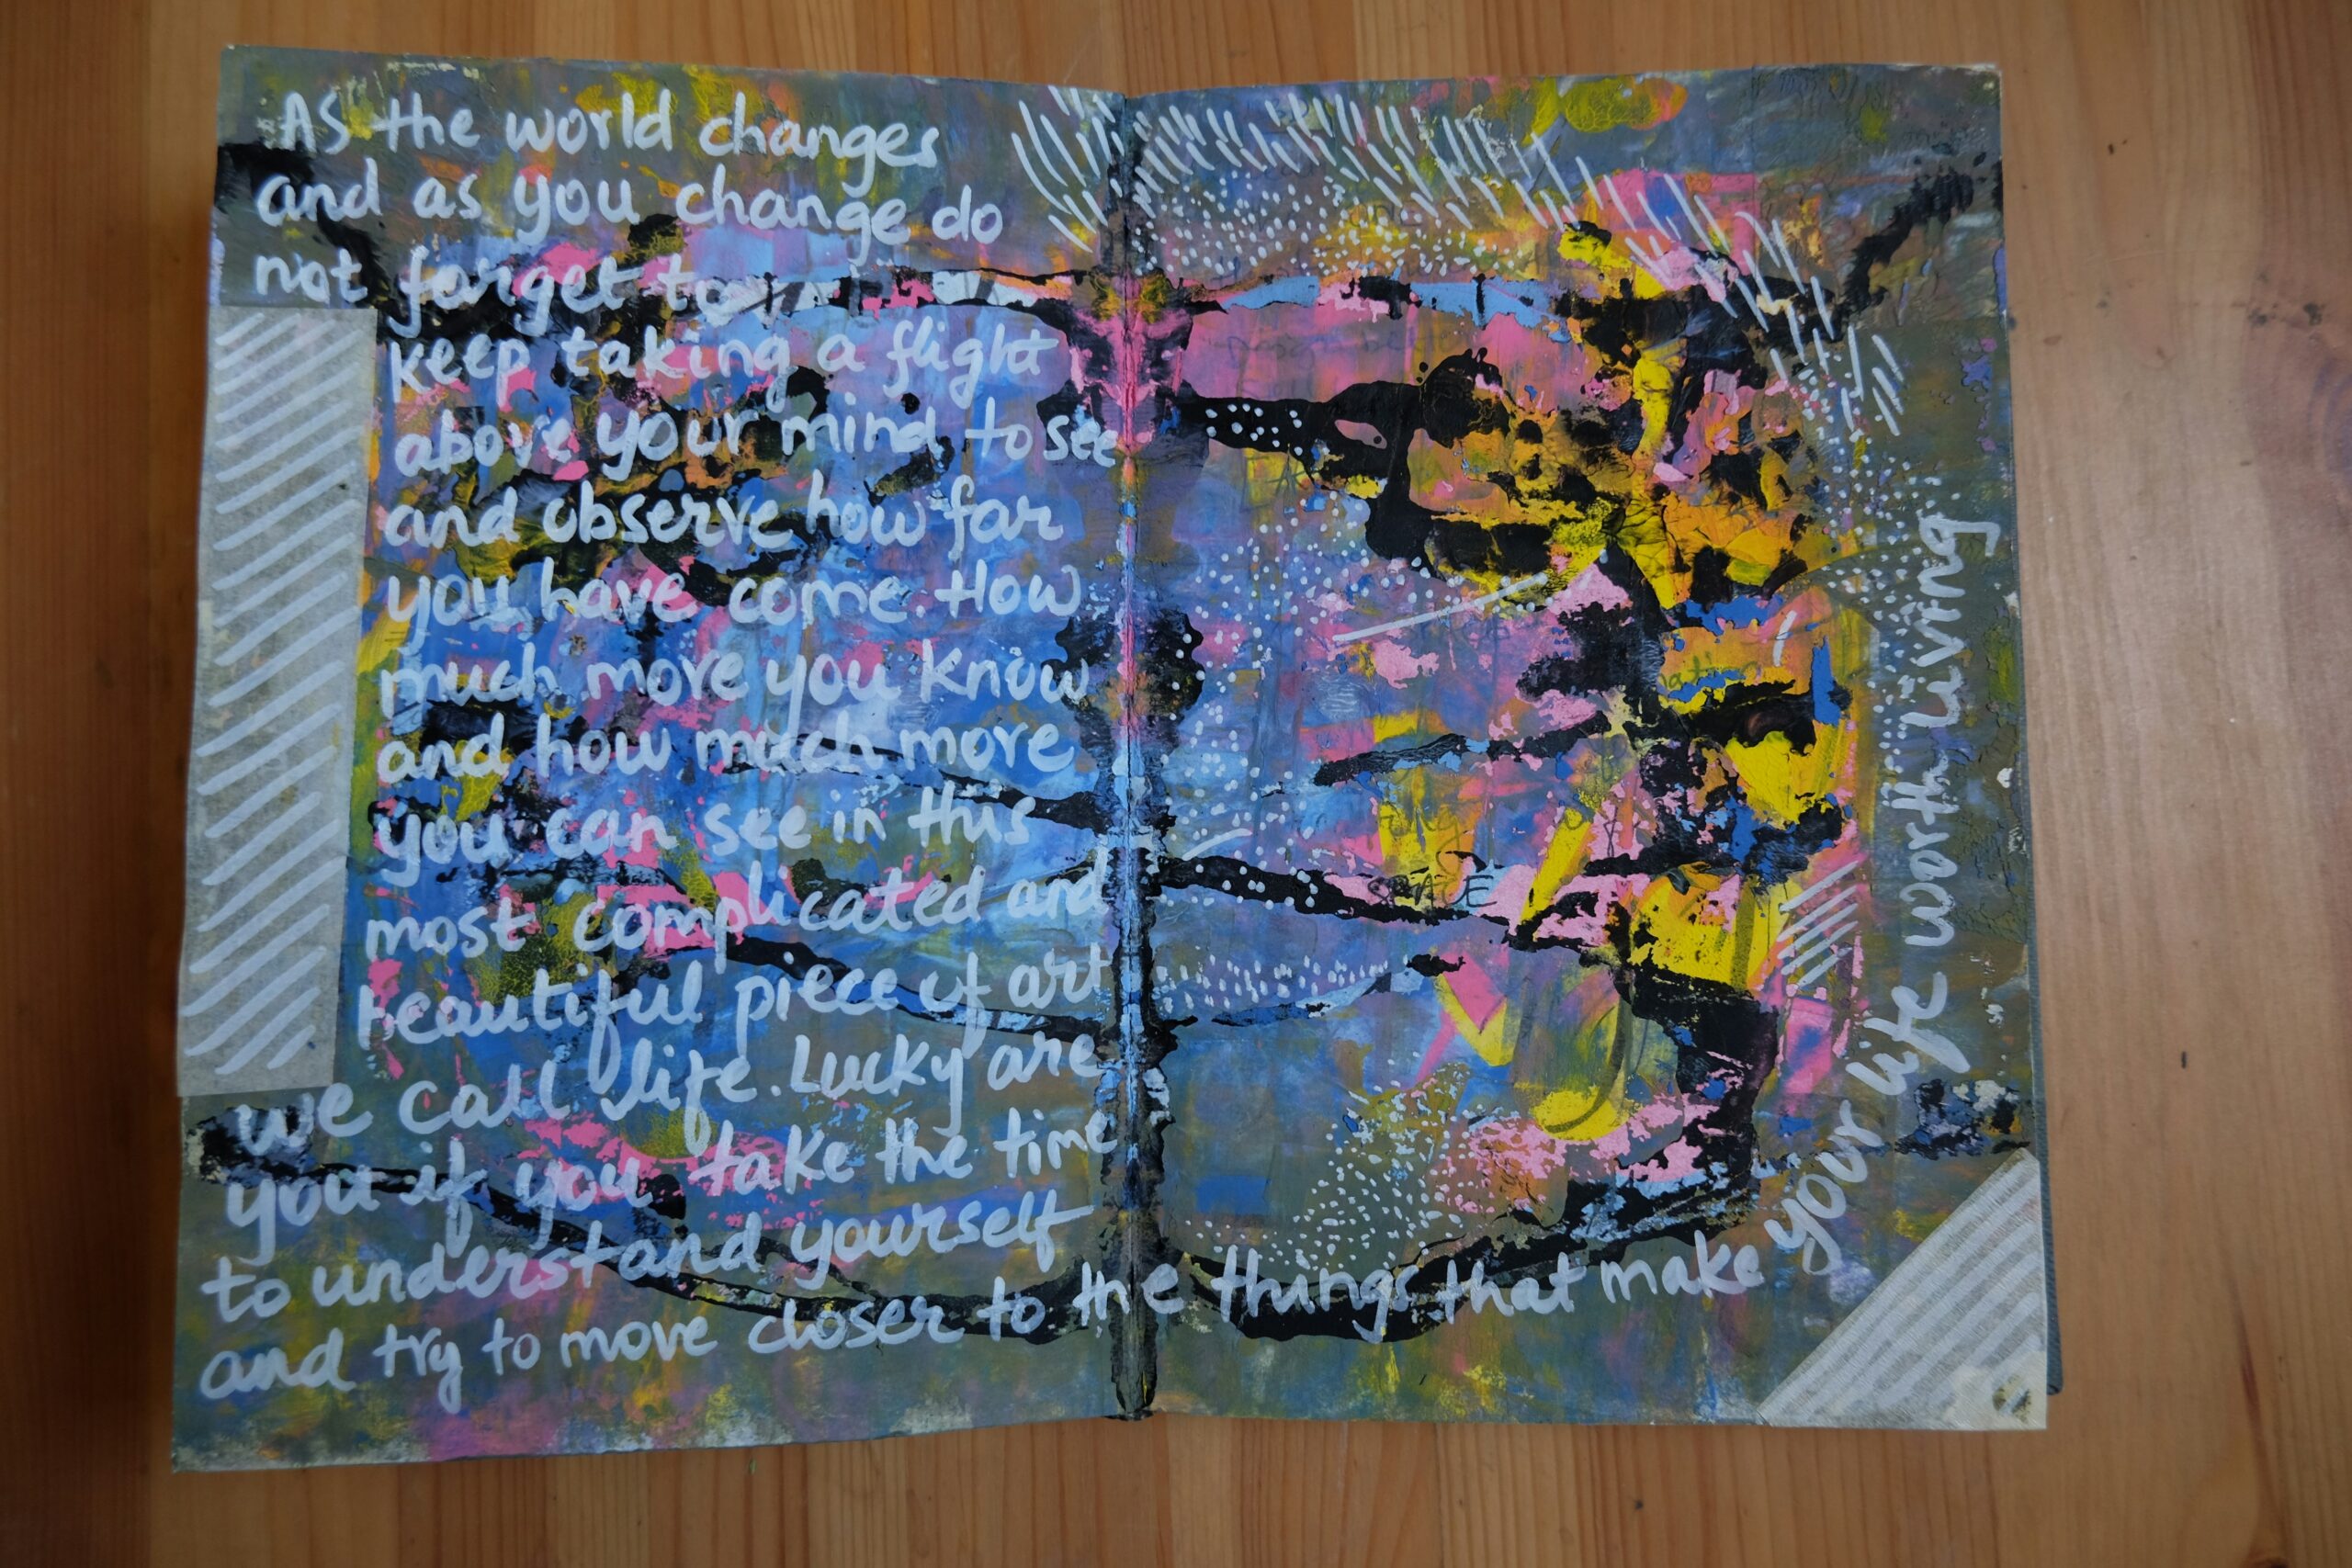 As the world changes
and as you change do
not forget to
keep taking a flight
above your mind to see
and observe how far
you have come. How
much more you know
and how much more
you can see in this
most complicated and
beautiful piece of art
we call life. Lucky are
you if you take the time
to understand yourself
and try to move closer to the things that make your life worth living